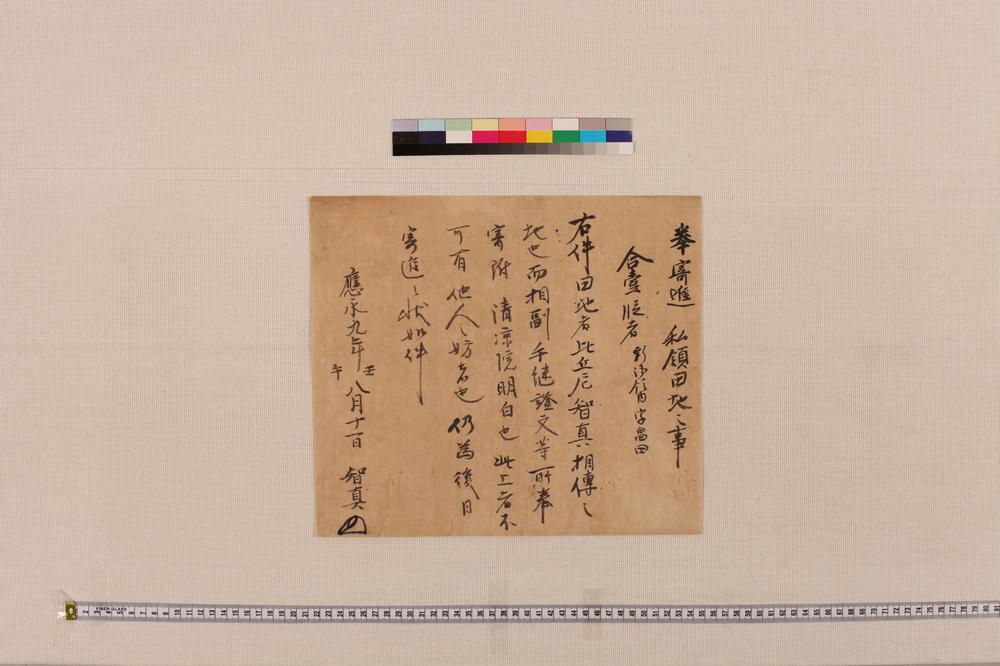 奉寄進 私領田地之事
合壹段者 字畠田
右件田地者比丘尼智真相傳之
地也而相副手継證文等所奉
寄附 清凉院明白也此上者不
可有他人之妨者也仍為後日
寄進之状如件
應永九年壬午八月十一日 智真